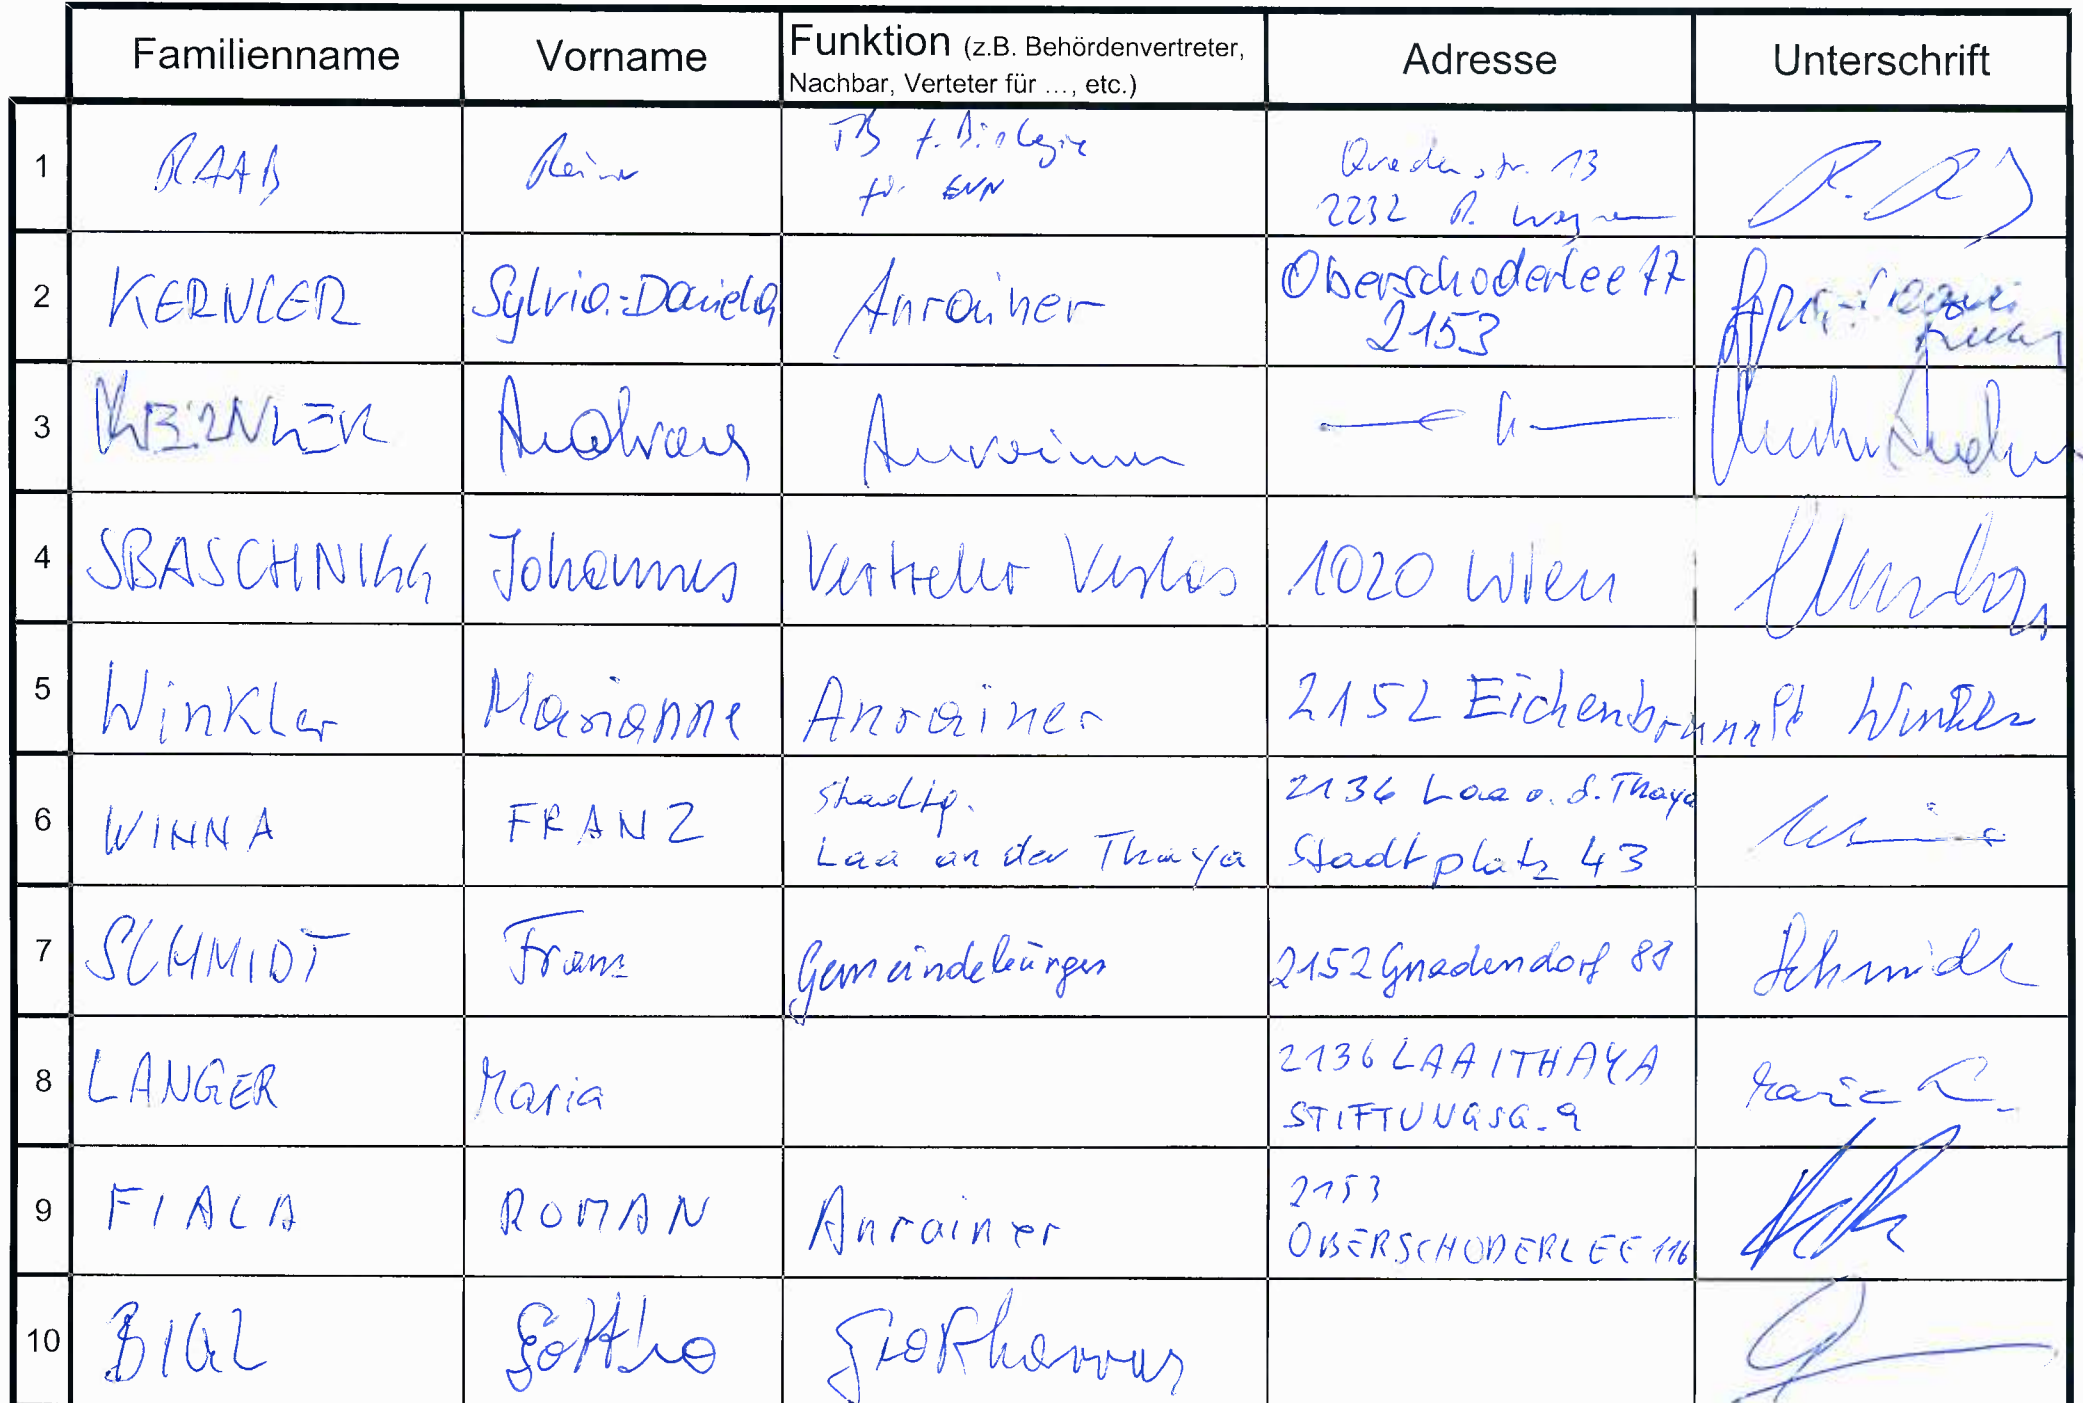 Familienname Vorname Funktion (z.B. Behördenvertreter, Nachbar, Verteter für ..., etc.) Adresse Unterschrift
1 RAAB Rainer TB f. Biologie
für EVN 2232
2 KERNLER Sylvia-Daniela Anrainer Oberschoderlee 77
2153
3 KERNLER Andreas Anrainer — " —
4 SBASCHNIGG Johannes Vertreter Vestas 1020 Wien
5 Winkler Marianne Anrainer 2152 Eichenbrunn Winkler
6 WINNA FRANZ Stadtg.
Laa an der Thaya 2136 Laa a. d. Thaya
Stadtplatz 43
7 SCHMIDT Franz Gemeindebürger 2152 Gnadendorf 88 Schmidt
8 LANGER Maria 2136 LAA/THAYA
STIFTUNGSG. 9 Maria L.
9 FIALA ROMAN Anrainer 2153
OBERSCHODERLEE 116
10 BIGL Großharras